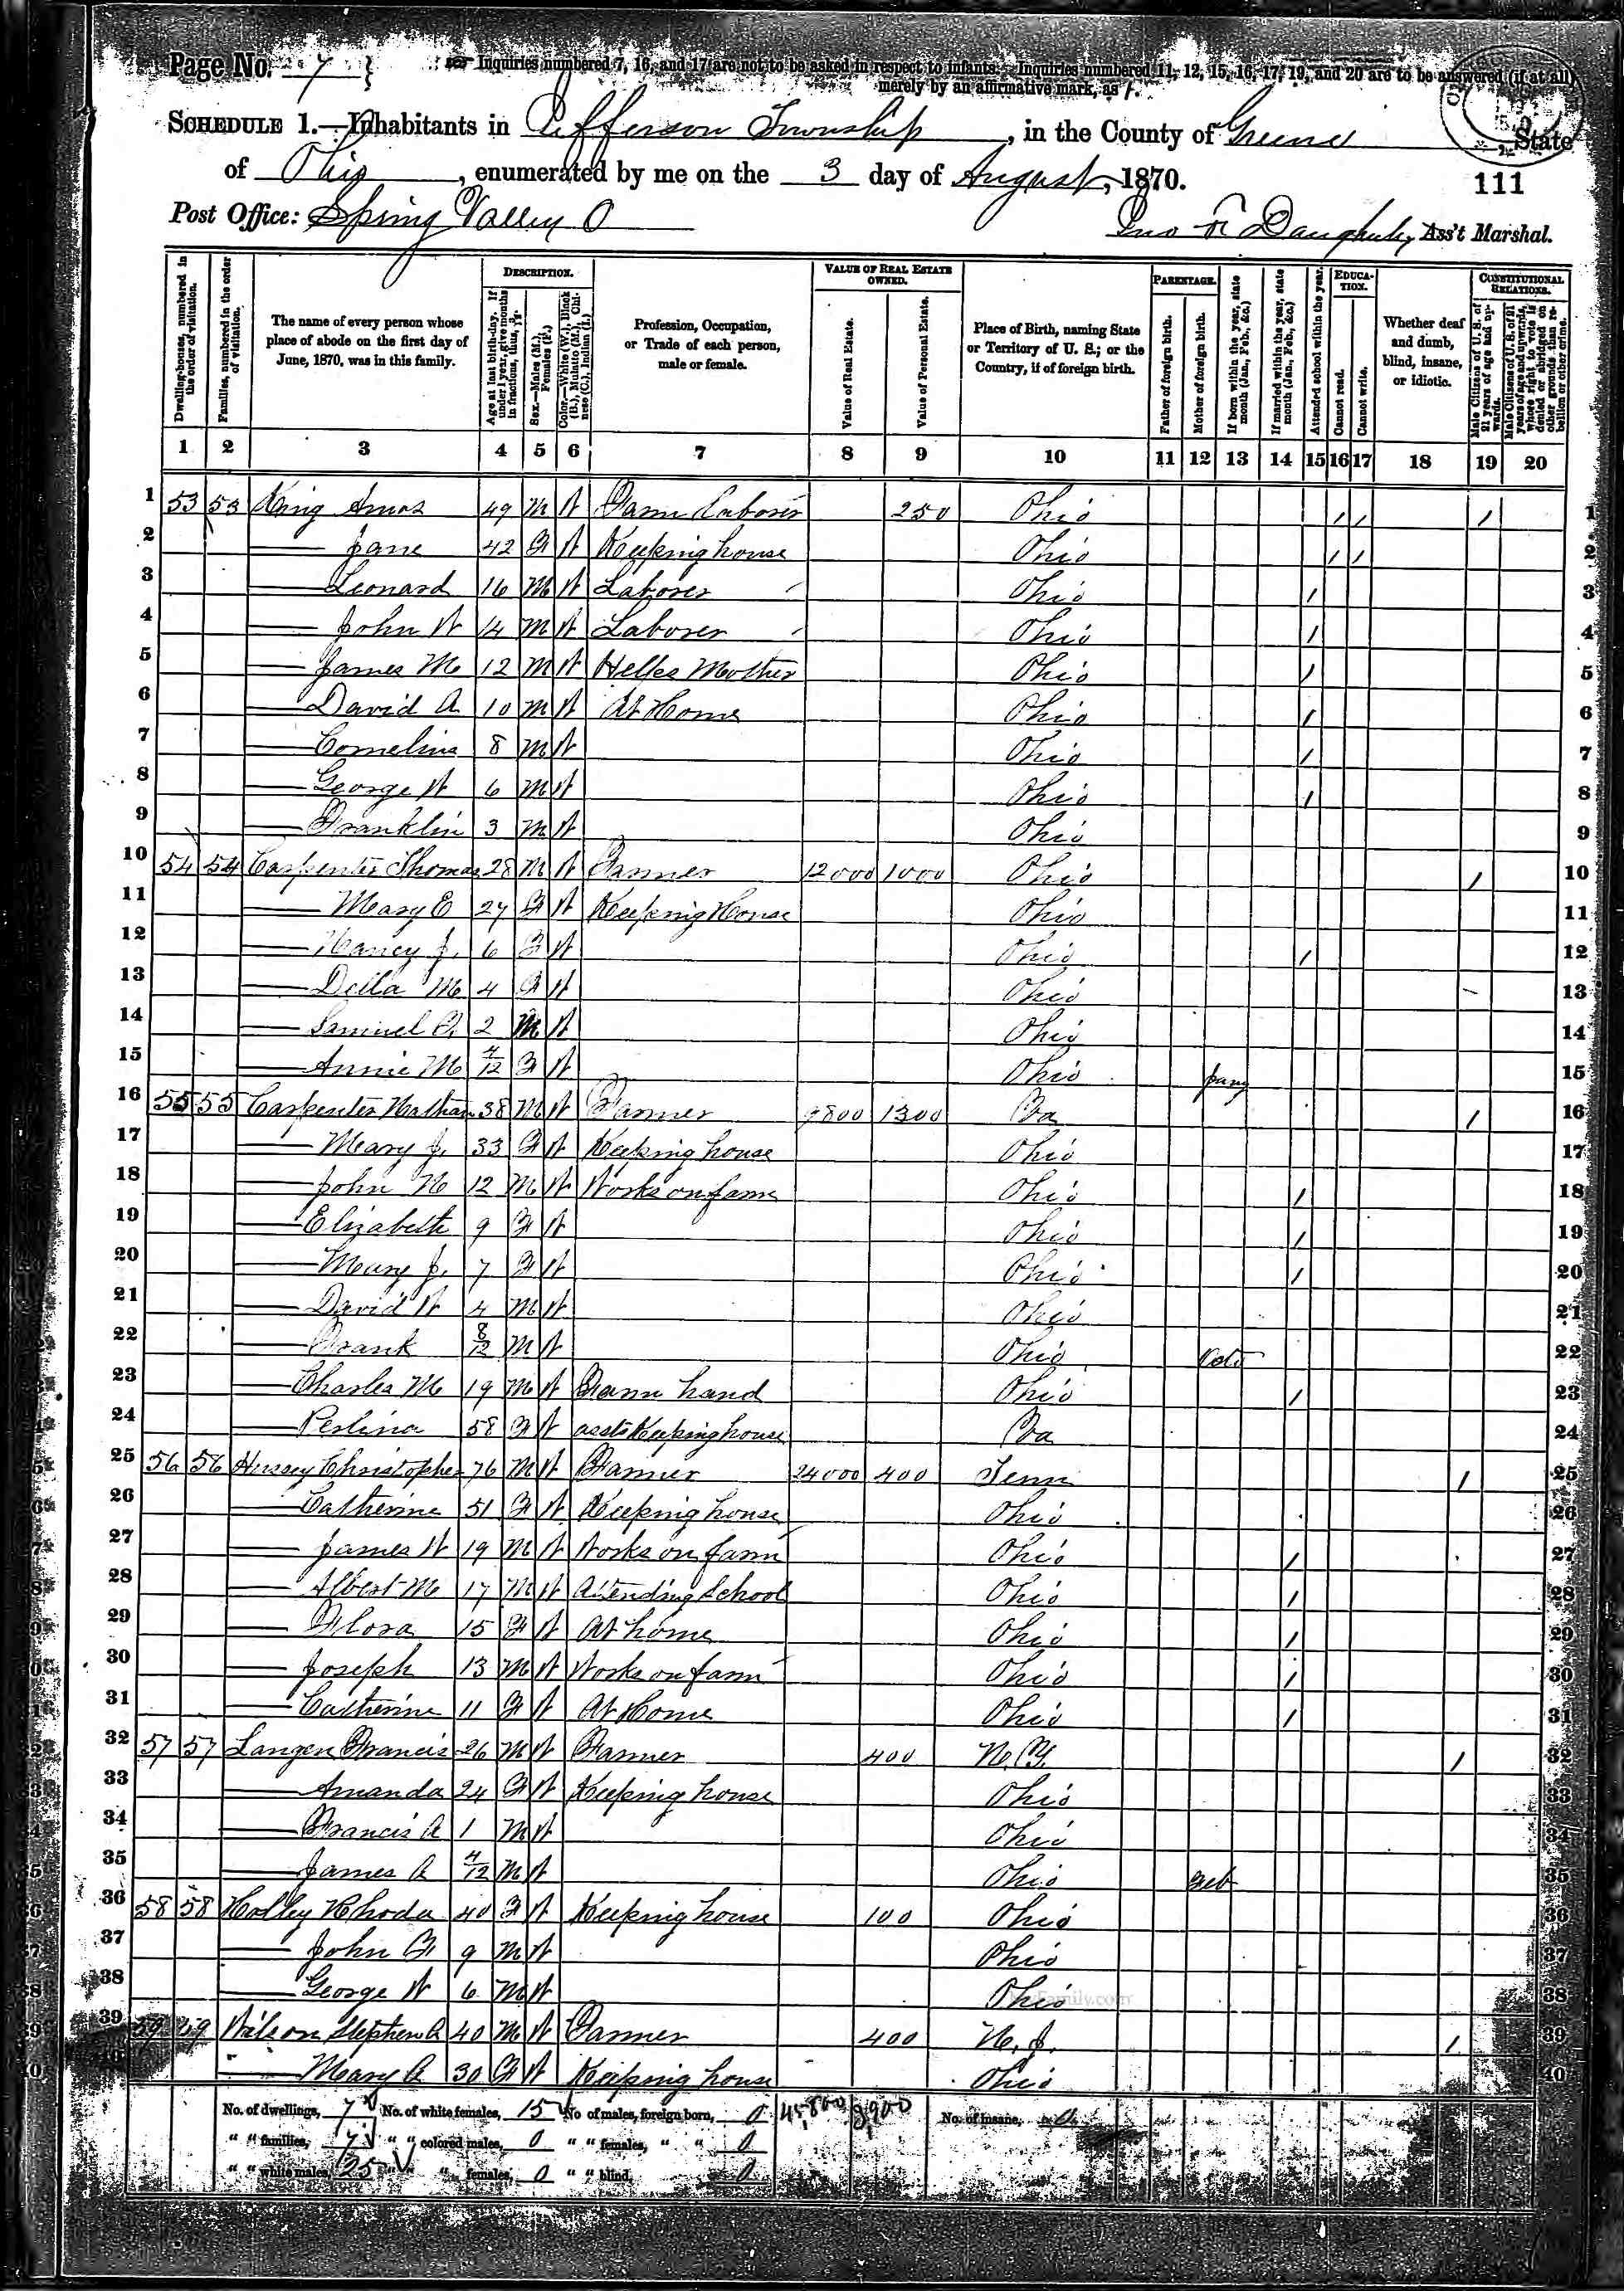 Page No. 7
Inquiries numbered 7, 16, and 17 are not to be asked in respect to infants. Inquiries numbered 11, 12, 15, 16, 17, 19, and 20 are to be answered (if at all)
merely by an affirmative mark, as /.
SCHEDULE 1.—Inhabitants in Jefferson Township, in the County of Greene State
of Ohio, enumerated by me on the 3 day of August, 1870.
111
Post Office: Spring Valley O
Ass't Marshal.
Dwelling-houses, numbered in the order of visitation.
Families, numbered in the order of visitation.
The name of every person whose place of abode on the first day of June, 1870, was in this family.
DESCRIPTION.
Age at last birth-day. If under 1 year, give months in fractions, thus, 3/12
Sex.—Males (M.), Females (F.)
Color.—White (W.), Black (B.), Mulatto (M.), Chinese (C.), Indian (I.)
Profession, Occupation, or Trade of each person, male or female.
VALUE OF REAL ESTATE OWNED.
Value of Real Estate.
Value of Personal Estate.
Place of Birth, naming State or Territory of U. S.; or the Country, if of foreign birth.
PARENTAGE.
Father of foreign birth.
Mother of foreign birth.
If born within the year, state month (Jan., Feb., &c.)
If married within the year, state month (Jan., Feb., &c.)
Attended school within the year.
EDUCATION.
Cannot read.
Cannot write.
Whether deaf and dumb, blind, insane, or idiotic.
CONSTITUTIONAL RELATIONS.
Male Citizens of U. S. of 21 years of age and upwards.
Male Citizens of U. S. of 21 years of age and upwards, whose right to vote is denied or abridged on other grounds than rebellion or other crime.
1 2 3 4 5 6 7 8 9 10 11 12 13 14 15 16 17 18 19 20
1 53 53 King Amos 49 M W Farm Laborer 250 Ohio / / / 1
2 — Jane 42 F W Keeping house Ohio / / 2
3 — Leonard 16 M W Laborer Ohio / 3
4 — John W 14 M W Laborer Ohio / 4
5 — James M 12 M W Helps Mother Ohio / 5
6 — David A 10 M W At Home Ohio / 6
7 — Cornelius 8 M W Ohio / 7
8 — George W 6 M W Ohio / 8
9 — Franklin 3 M W Ohio 9
10 54 54 Carpenter Thomas 28 M W Farmer 12000 1000 Ohio / 10
11 — Mary E 27 F W Keeping House Ohio 11
12 — Nancy J. 6 F W Ohio / 12
13 — Della M 4 F W Ohio 13
14 — Samuel 2 M W Ohio 14
15 — Annie M 4/12 F W Ohio 15
16 55 55 Carpenter Nathan 38 M W Farmer 9800 1300 Va / 16
17 — Mary J. 33 F W Keeping house Ohio 17
18 — John N 12 M W Works on farm Ohio / 18
19 — Elizabeth 9 F W Ohio / 19
20 — Mary J. 7 F W Ohio / 20
21 — David W 4 M W Ohio 21
22 — Frank 8/12 M W Ohio Oct 22
23 — Charles M 19 M W Farm hand Ohio / 23
24 — Perlina 58 F W assts Keeping house Va 24
25 56 56 Hussey Christopher 76 M W Farmer 24000 400 Tenn / 25
26 — Catherine 51 F W Keeping house Ohio 26
27 — James W 19 M W Works on farm Ohio / 27
28 — Albert M 17 M W Attending School Ohio / 28
29 — Flora 15 F W At home Ohio / 29
30 — Joseph 13 M W Works on farm Ohio / 30
31 — Catherine 11 F W At Home Ohio / 31
32 57 57 Langen Francis 26 M W Farmer 400 N. Y. / 32
33 — Amanda 24 F W Keeping house Ohio 33
34 — Francis A 1 M W Ohio 34
35 — James A 4/12 M W Ohio Feb 35
36 58 58 Holley Rhoda 40 F W Keeping house 100 Ohio 36
37 — John F 9 M W Ohio 37
38 — George W 6 M W Ohio 38
39 59 59 Wilson Stephen A 40 M W Farmer 400 N. J. / 39
40 — Mary A 30 F W Keeping house Ohio 40
No. of dwellings, 7 No. of white females, 15 No of males, foreign born, 0 45,800 3,900 No. of insane, 0
" " families, 7 " " colored males, 0 " " females, " " 0
" " white males, 25 " " females, 0 " " blind, 0